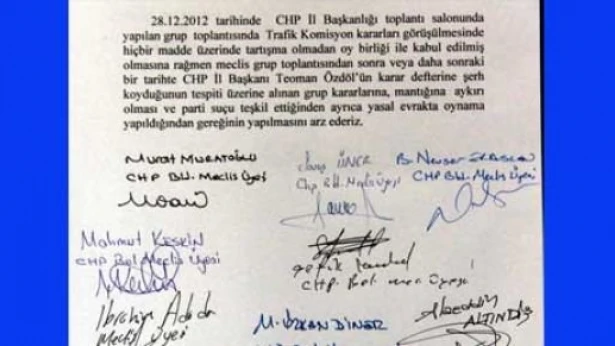 28.12.2012 tarihinde CHP İl Başkanlığı toplantı salonunda
yapılan grup toplantısında Trafik Komisyon kararları görüşülmesinde
hiçbir madde üzerinde tartışma olmadan oy birliği ile kabul edilmiş
olmasına rağmen meclis grup toplantısından sonra veya daha sonraki
bir tarihte CHP İl Başkanı Teoman Özdöl'ün karar defterine şerh
koyduğunun tespiti üzerine alınan grup kararlarına, mantığına aykırı
olması ve parti suçu teşkil ettiğinden ayrıca yasal evrakta oynama
yapıldığından gereğinin yapılmasını arz ederiz.
Murat MURATOĞLU
CHP Bld. Meclis Üyesi
ÜNER
CHP Bld. Meclis Üyesi
B. Nevser
CHP Bld. Meclis Üyesi
Mahmut KESKİN
CHP Bel Meclis Üyesi
CHP. Bel. mec üyesi
İbrahim
Meclis Üyesi
M. ÖZKAN DİNER
ALTINDİŞ